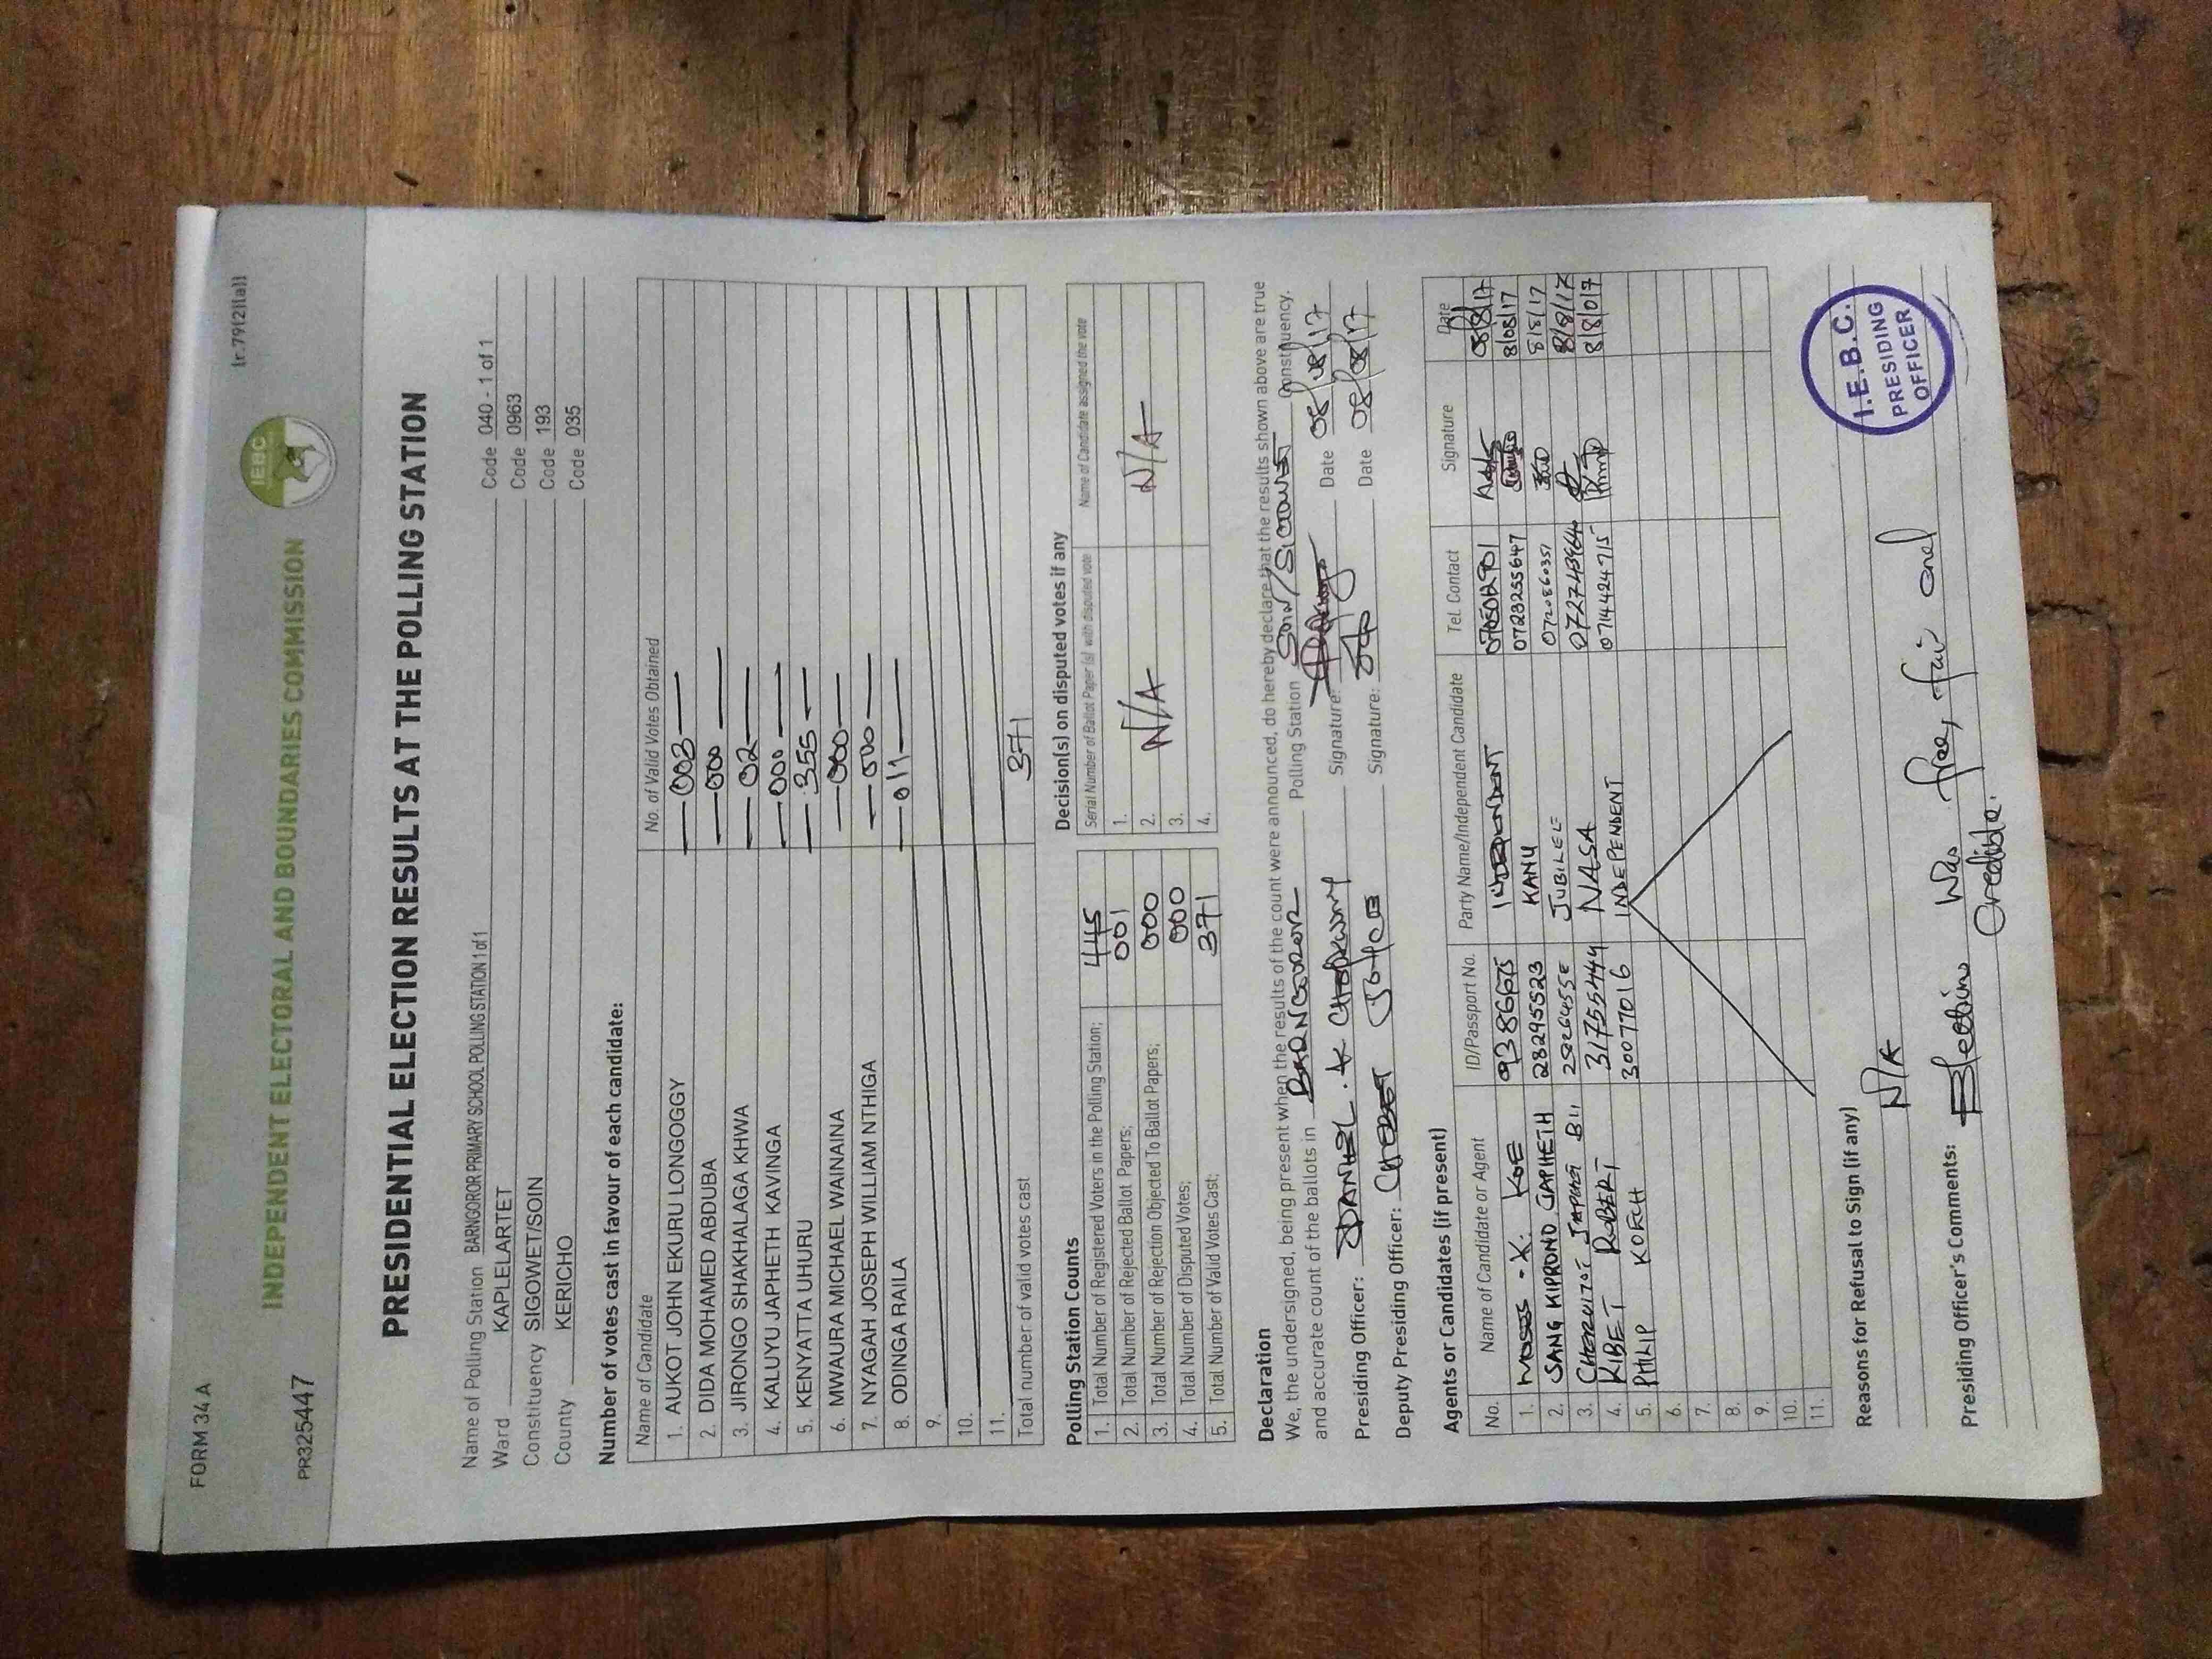 FORM 34 A
(r.79(2)(a))
IEBC
INDEPENDENT ELECTORAL AND BOUNDARIES COMMISSION
PR325447
PRESIDENTIAL ELECTION RESULTS AT THE POLLING STATION
Name of Polling Station BARNGOROR PRIMARY SCHOOL POLLING STATION 1 of 1 Code 040 - 1 of 1
Ward KAPLELARTET Code 0963
Constituency SIGOWET/SOIN Code 193
County KERICHO Code 035
Number of votes cast in favour of each candidate:
Name of Candidate No. of Valid Votes Obtained
1. AUKOT JOHN EKURU LONGOGGY 003
2. DIDA MOHAMED ABDUBA 000
3. JIRONGO SHAKHALAGA KHWA 02
4. KALUYU JAPHETH KAVINGA 000
5. KENYATTA UHURU 355
6. MWAURA MICHAEL WAINAINA 000
7. NYAGAH JOSEPH WILLIAM NTHIGA 000
8. ODINGA RAILA 011
9.
10.
11.
Total number of valid votes cast 371
Polling Station Counts
1. Total Number of Registered Voters in the Polling Station; 445
2. Total Number of Rejected Ballot Papers; 001
3. Total Number of Rejection Objected To Ballot Papers; 000
4. Total Number of Disputed Votes; 000
5. Total Number of Valid Votes Cast; 371
Decision(s) on disputed votes if any
Serial Number of Ballot Paper (s) with disputed vote Name of Candidate assigned the vote
1.
2. N/A N/A
3.
4.
Declaration
We, the undersigned, being present when the results of the count were announced, do hereby declare that the results shown above are true
and accurate count of the ballots in BARNGOROR Polling Station SOIN/SIGOWET Constituency.
Presiding Officer: DANIEL . K CHEPKWONY Signature: Date 08/08/17
Deputy Presiding Officer: CHEBET JOYCE Signature: Date 08/08/17
Agents or Candidates (if present)
No. Name of Candidate or Agent ID/Passport No. Party Name/Independent Candidate Tel. Contact Signature Date
1. MOSES - K. KOE INDEPENDENT 08/8/17
2. SANG KIPRONO JAPHETH 28295523 KANU 0723255647 8/08/17
3. JUBILEE 8/8/17
4. KIBET ROBERT 31755444 NASA 0727489644 8/8/17
5. PHILIP KOECH 30077016 INDEPENDENT 0714424715 8/8/017
6.
7.
8.
9.
10.
11.
Reasons for Refusal to Sign (if any)
N/A
I.E.B.C.
PRESIDING
OFFICER
Presiding Officer's Comments: Elections Was free, fair and
Credible.